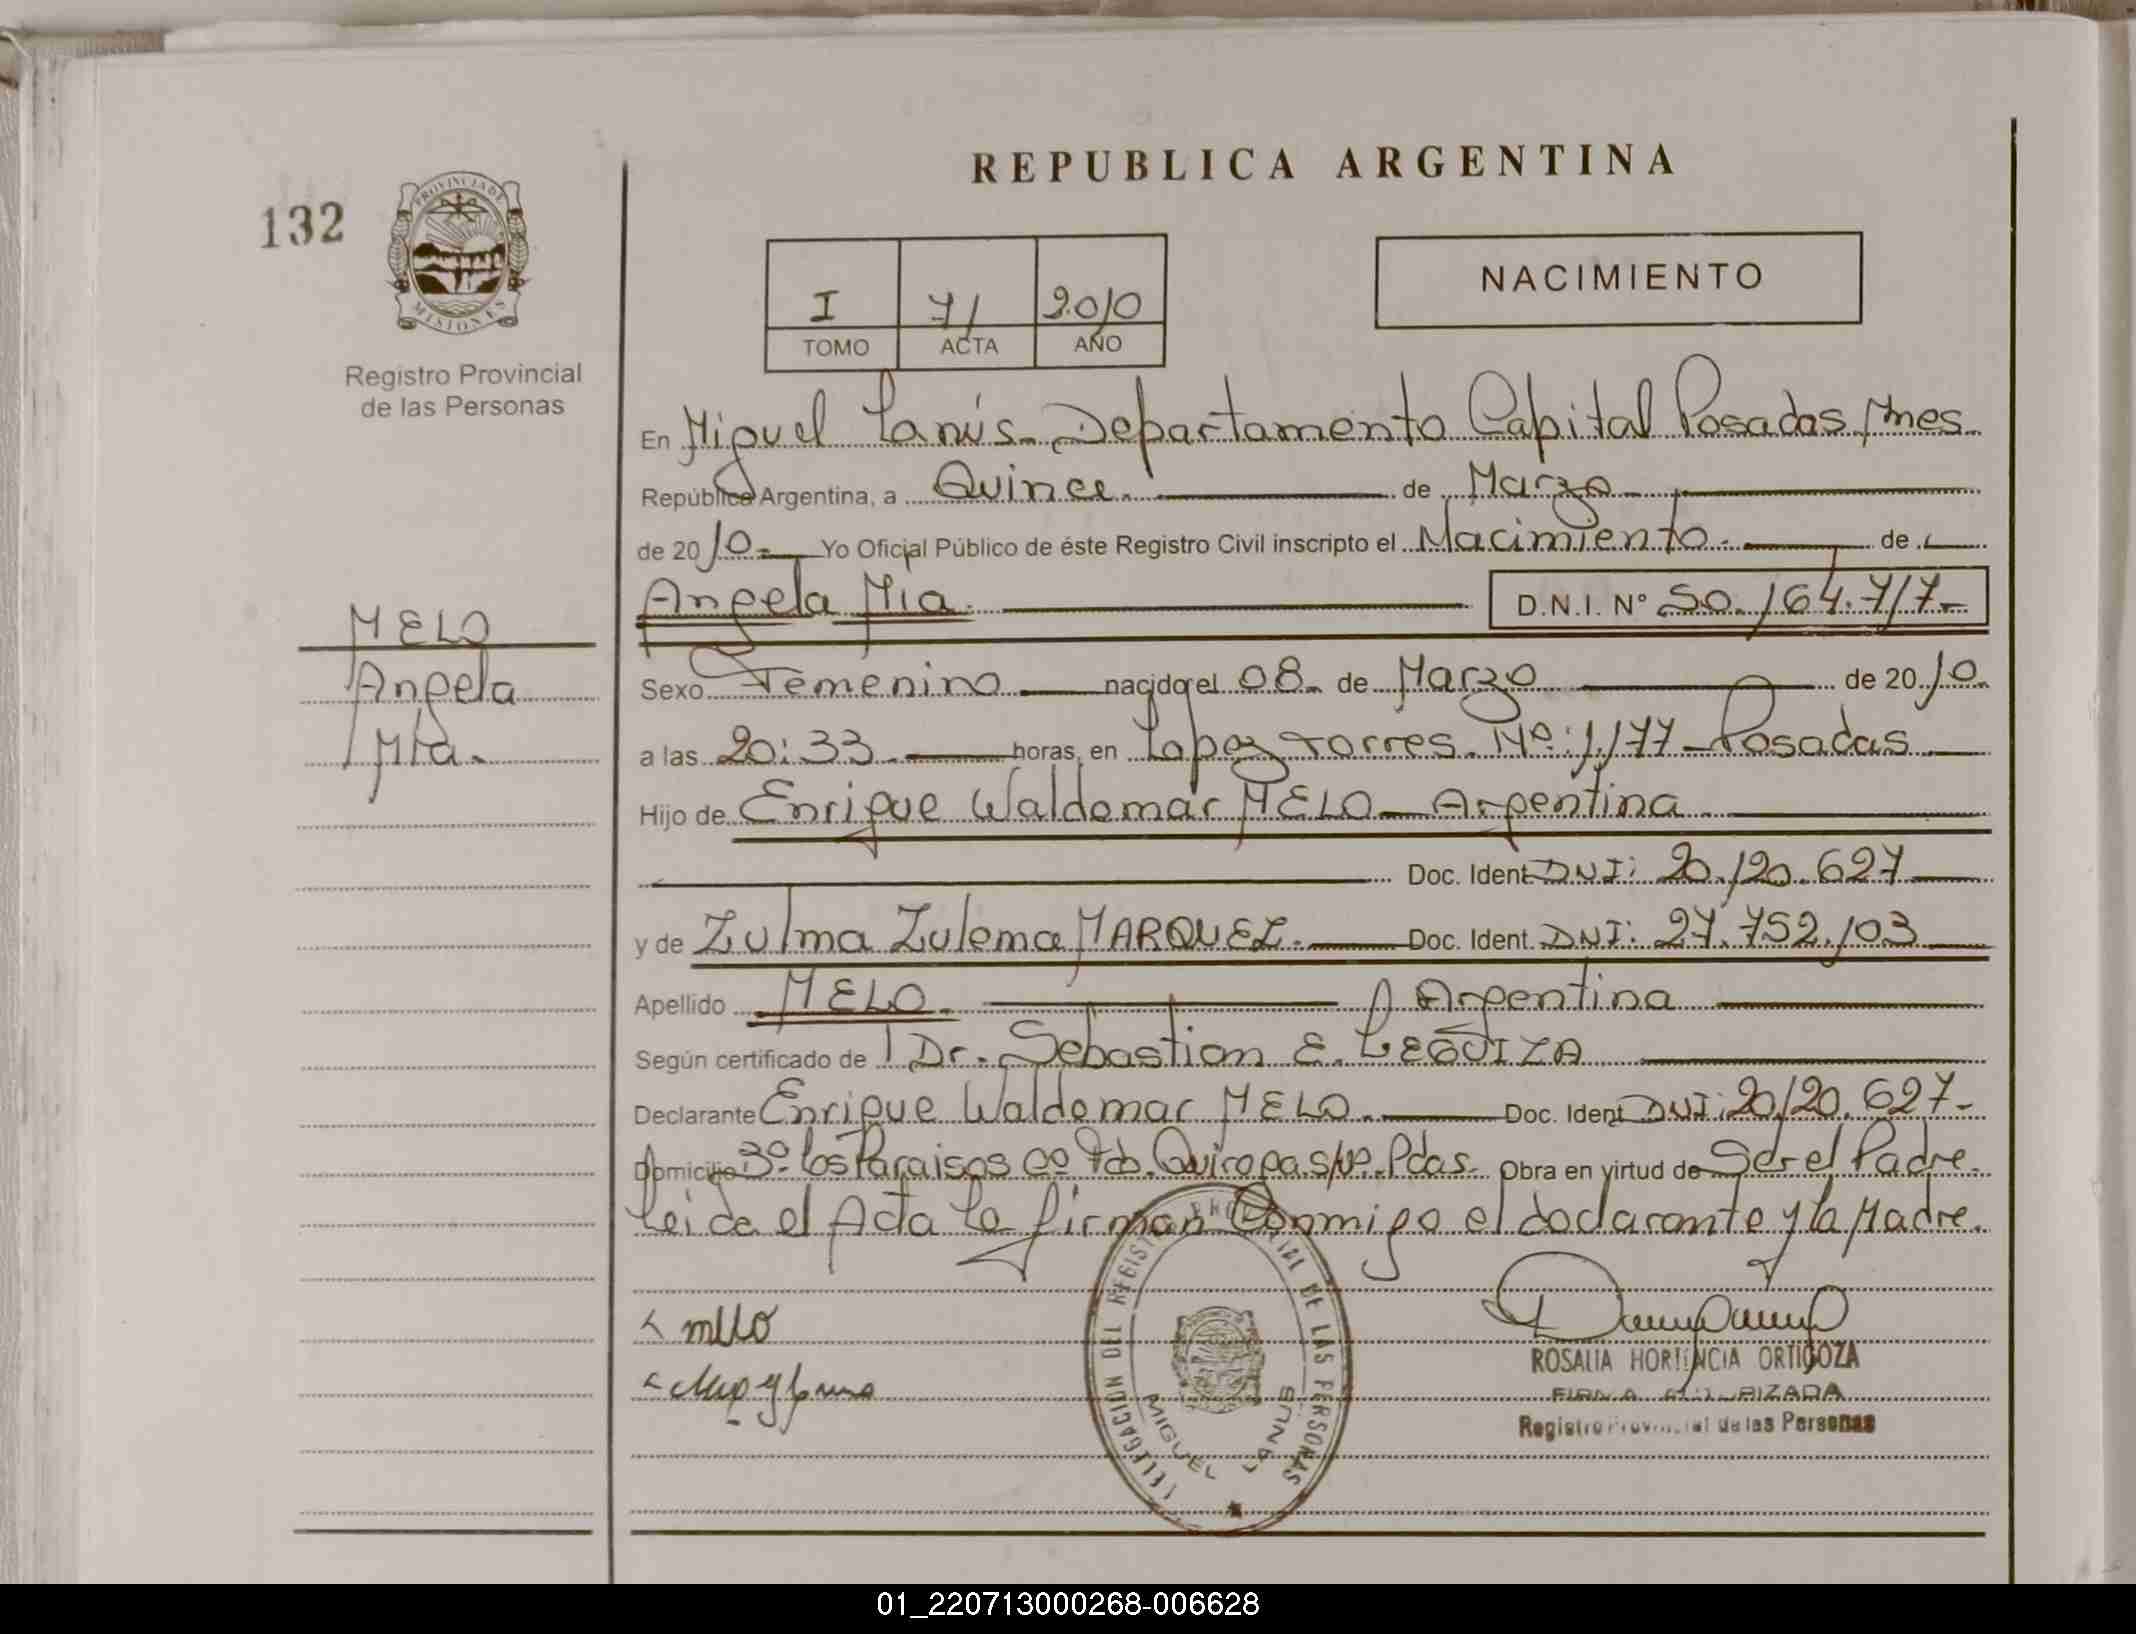 REPUBLICA ARGENTINA
132
PROVINCIA DE
MISIONES
NACIMIENTO
I 71 2010
TOMO ACTA AÑO
Registro Provincial
de las Personas
En Miguel Lanús - Departamento Capital Posadas Mnes
República Argentina, a Quince. de Marzo
de 2010 - Yo Oficial Público de éste Registro Civil inscripto el Nacimiento - de
Angela Mia. D.N.I. N° 50.164.717-
MELO
Angela
Mia -
Sexo Femenino nacido el 08 - de Marzo de 2010.
a las 20:33. horas, en Lopez Torres. Nº: 1.177 - Posadas
Hijo de Enrique Waldemar MELO - Argentina
Doc. Ident DNI: 20.120.627
y de Zulma Zulema MARQUEZ. Doc. Ident. DNI: 27.752.103
Apellido MELO. Argentina
Según certificado de Dr. Sebastian E. LEGUIZA
Declarante Enrique Waldemar MELO. Doc. Ident DNI: 20120.627-
Domicilio Bº. los Paraisos Cº Fdo. Quiroga S/Nº. Pdas. Obra en virtud de Ser el Padre.
Leida el Acta La firman Conmigo el declarante y la Madre.
DELEGACION DEL REGISTRO PROVINCIAL DE LAS PERSONAS
MIGUEL LANUS
ROSALIA HORTENCIA ORTIGOZA
FIRMA AUTORIZADA
Registro Provincial de las Personas
01_220713000268-006628